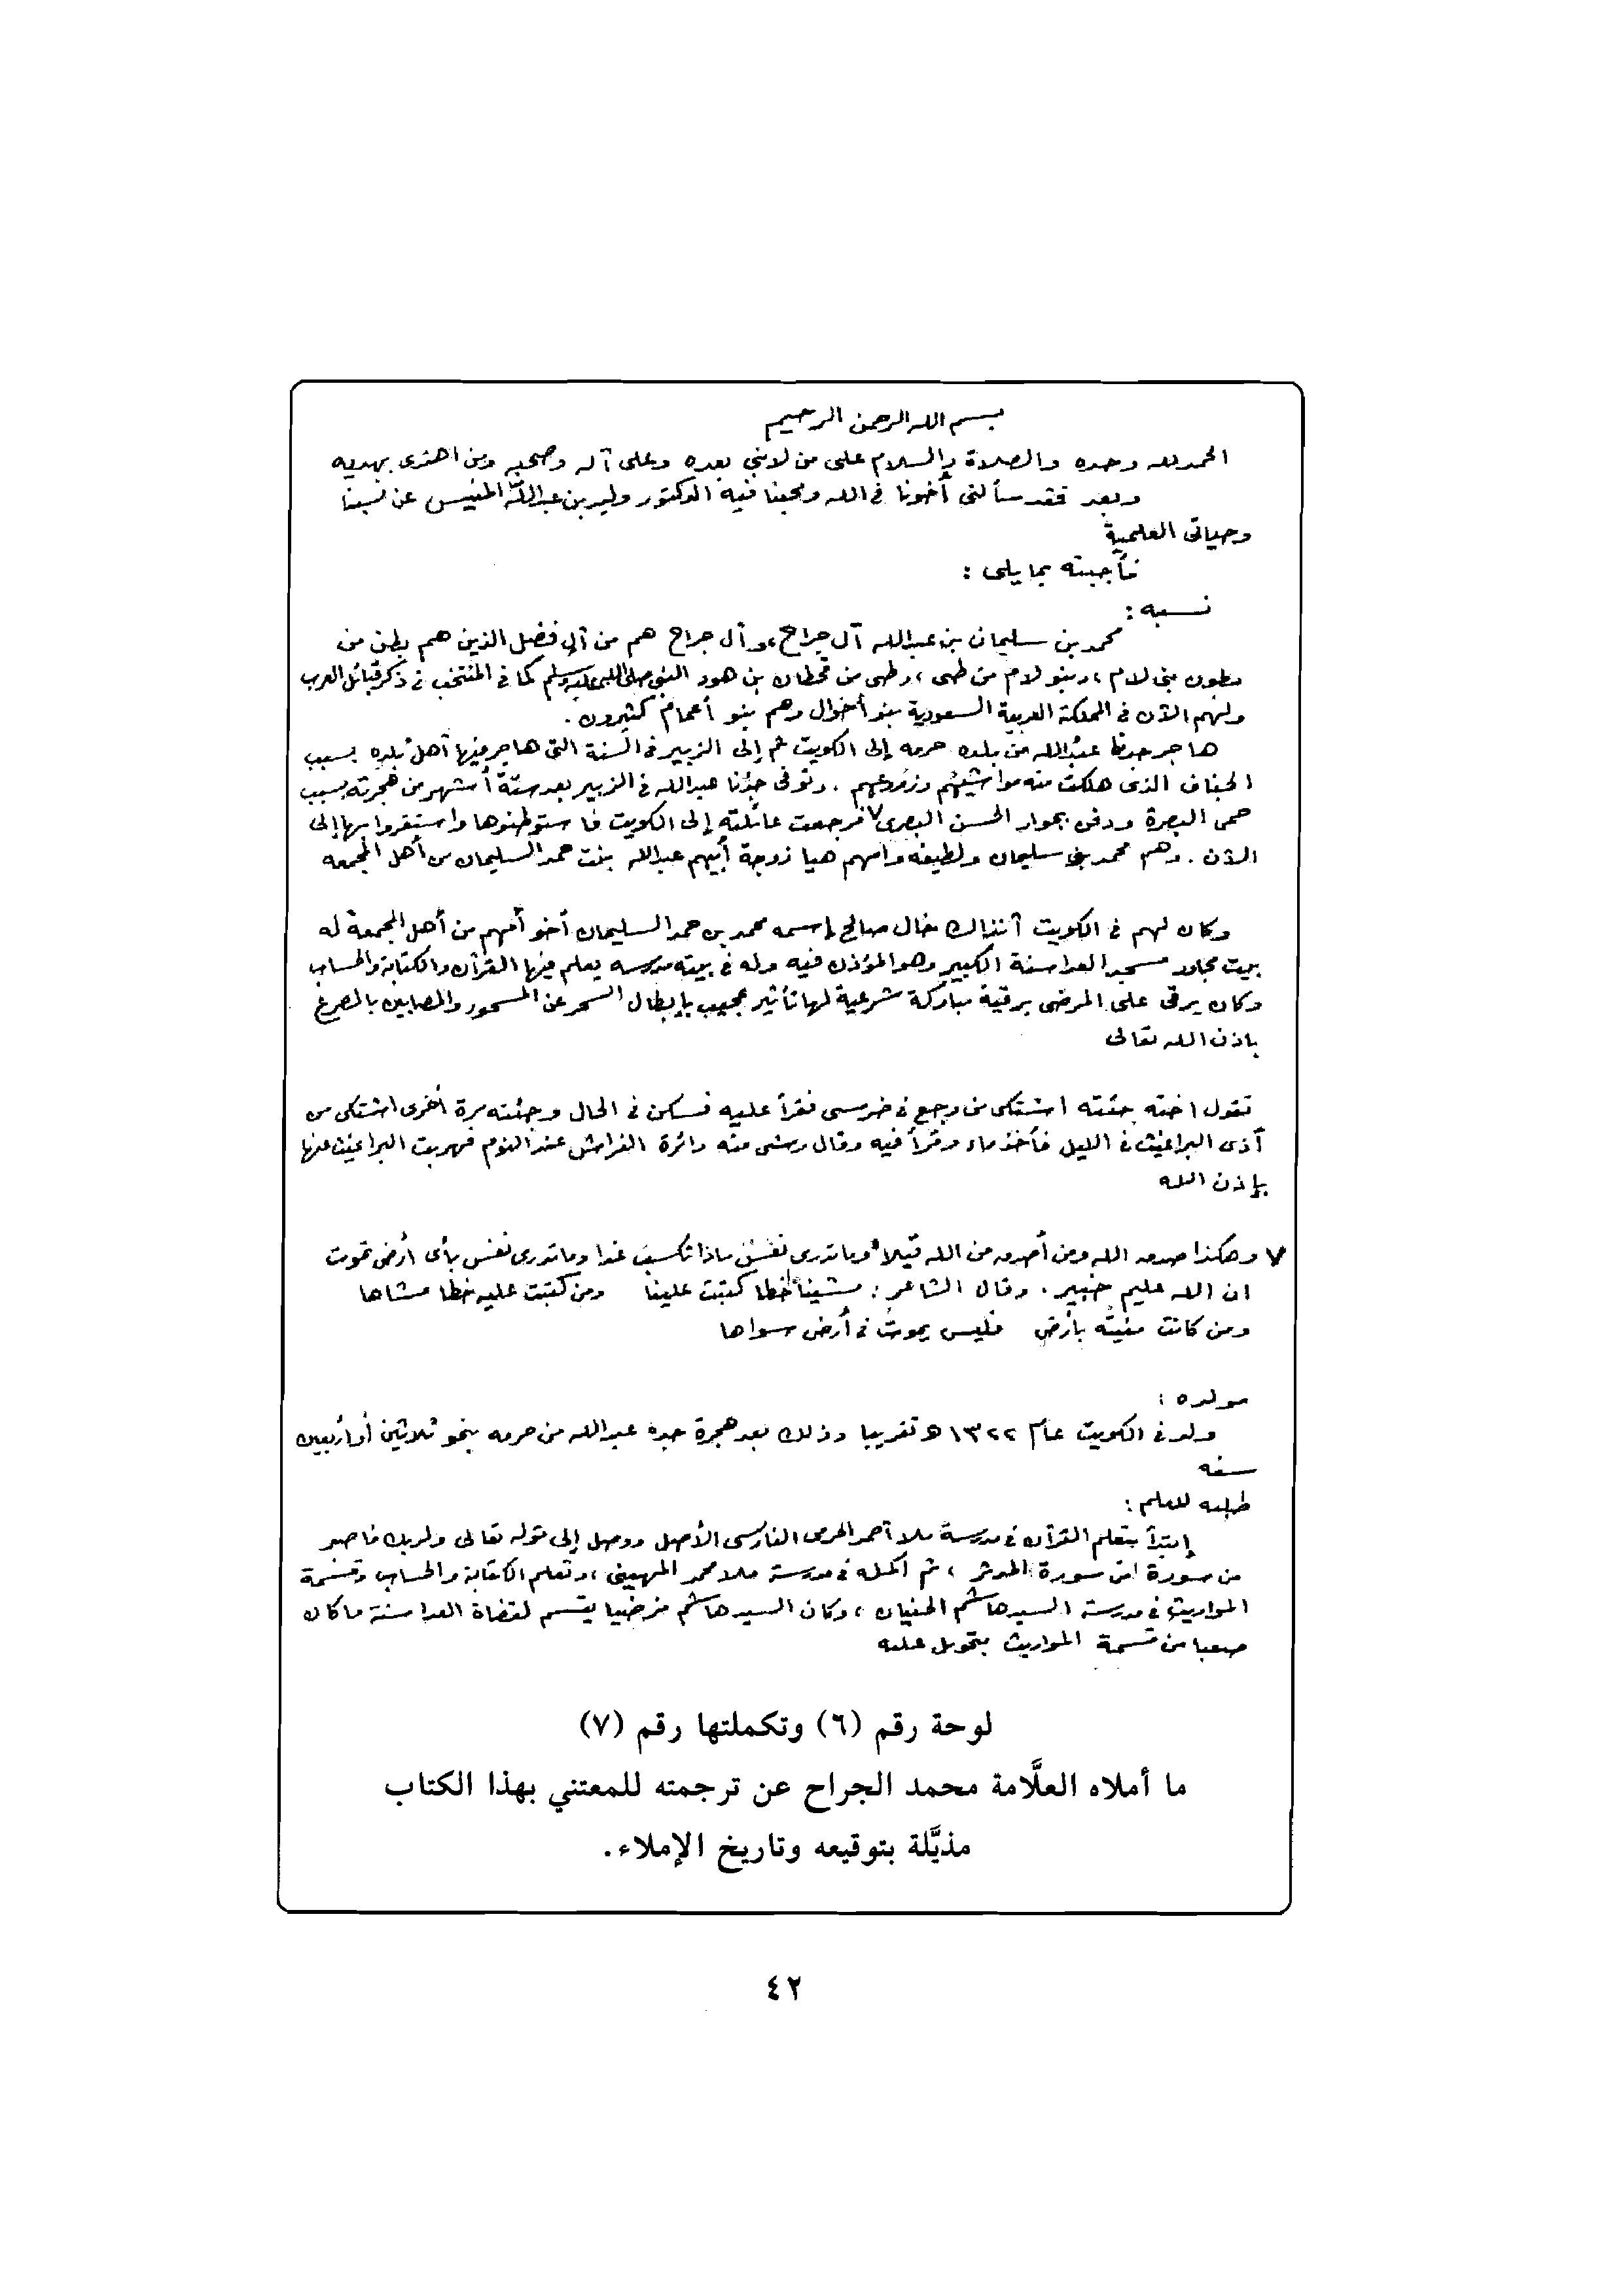 بسم الله الرحمن الرحيم
الحمد لله وحده والصلاة والسلام على من لا نبي بعده وعلى آله وصحبه ومن اهتدى بهديه
وبعد فقد سألني أخونا في الله ومحبنا فيه الدكتور وليد بن عبدالله المنيس عن نسبنا
وحياتي العلمية
فأجبته بما يلي :
نسبه :
محمد بن سليمان بن عبدالله آل جراح، وآل جراح هم من آل فضل الذين هم بطن من
بطون بني لام ، وبنو لام من طي ، وطي من قحطان بن هود النبي صلى الله عليه وسلم كما في المنتخب في ذكر قبائل العرب
ولهم الآن في المملكة العربية السعودية بنو أخوال وهم بنو أعمام كثيرون .
هاجر جدنا عبدالله من بلده حرمه إلى الكويت ثم إلى الزبير في السنة التي هاجر فيها أهل بلده بسبب
الجفاف الذي هلكت منه مواشيهم وزروعهم . وتوفي جدنا عبدالله في الزبير بعد ستة أشهر من هجرته بسبب
حمى البصرة ودفن بجوار الحسن البصري ٧ فرجعت عائلته إلى الكويت فاستوطنوها واستقروا بها إلى
الآن . وهم محمد بن سليمان ولطيفه وأمهم هيا زوجة أبيهم عبدالله بنت حمد السليمان من أهل المجمعه
وكان لهم في الكويت آنذاك خال صالح إسمه محمد بن حمد السليمان أخو أمهم من أهل المجمعة له
بيت مجاور مسجد العدا سنة الكبير وهو المؤذن فيه وله في بيته مدرسه يعلم فيها القرآن والكتابة والحساب
وكان يرقي على المرضى برقية مباركة شرعية لها تأثير عجيب بإبطال السحر عن المسحور والمصابين بالصرع
باذن الله تعالى
تقول اخته جئته اشتكى من وجع في ضرسى فقرأ عليه فسكن في الحال وجئته مرة أخرى اشتكى من
أذى البراغيث في الليل فأخذ ماء وقرأ فيه وقال رشى منه دائرة الفراش عند النوم فهربت البراغيث عنها
بإذن الله
٧ وهكذا صدق الله ومن أصدق من الله قيلا وما تدري نفس ماذا تكسب غدا وما تدري نفس بأي أرض تموت
ان الله عليم خبير . وقال الشاعر : مشيناها خطا كتبت علينا ومن كتبت عليه خطا مشاها
ومن كانت منيته بأرض فليس يموت في أرض سواها
مولده :
ولد في الكويت عام ١٣٢٢ هـ تقريبا وذلك بعد هجرة جده عبدالله من حرمه بنحو ثلاثين أو أربعين
سنه
طلبه للعلم :
إبتدأ بتعلم القرآن في مدرسة ملا أحمد الحرمي الفارسى الأصل ووصل إلى قوله تعالى ولربك فاصبر
من سورة المدثر ، ثم أكمله في مدرسة ملا محمد المهيني ، وتعلم الكتابة والحساب وقسمة
المواريث في مدرسة السيد هاشم الحنيان ، وكان السيد هاشم فرضيا يقسم لقضاة العدا سنة ما كان
صعبا من قسمة المواريث بتحويل عليه
لوحة رقم (٦) وتكملتها رقم (٧)
ما أملاه العلَّامة محمد الجراح عن ترجمته للمعتني بهذا الكتاب
مذيَّلة بتوقيعه وتاريخ الإملاء.
٤٢